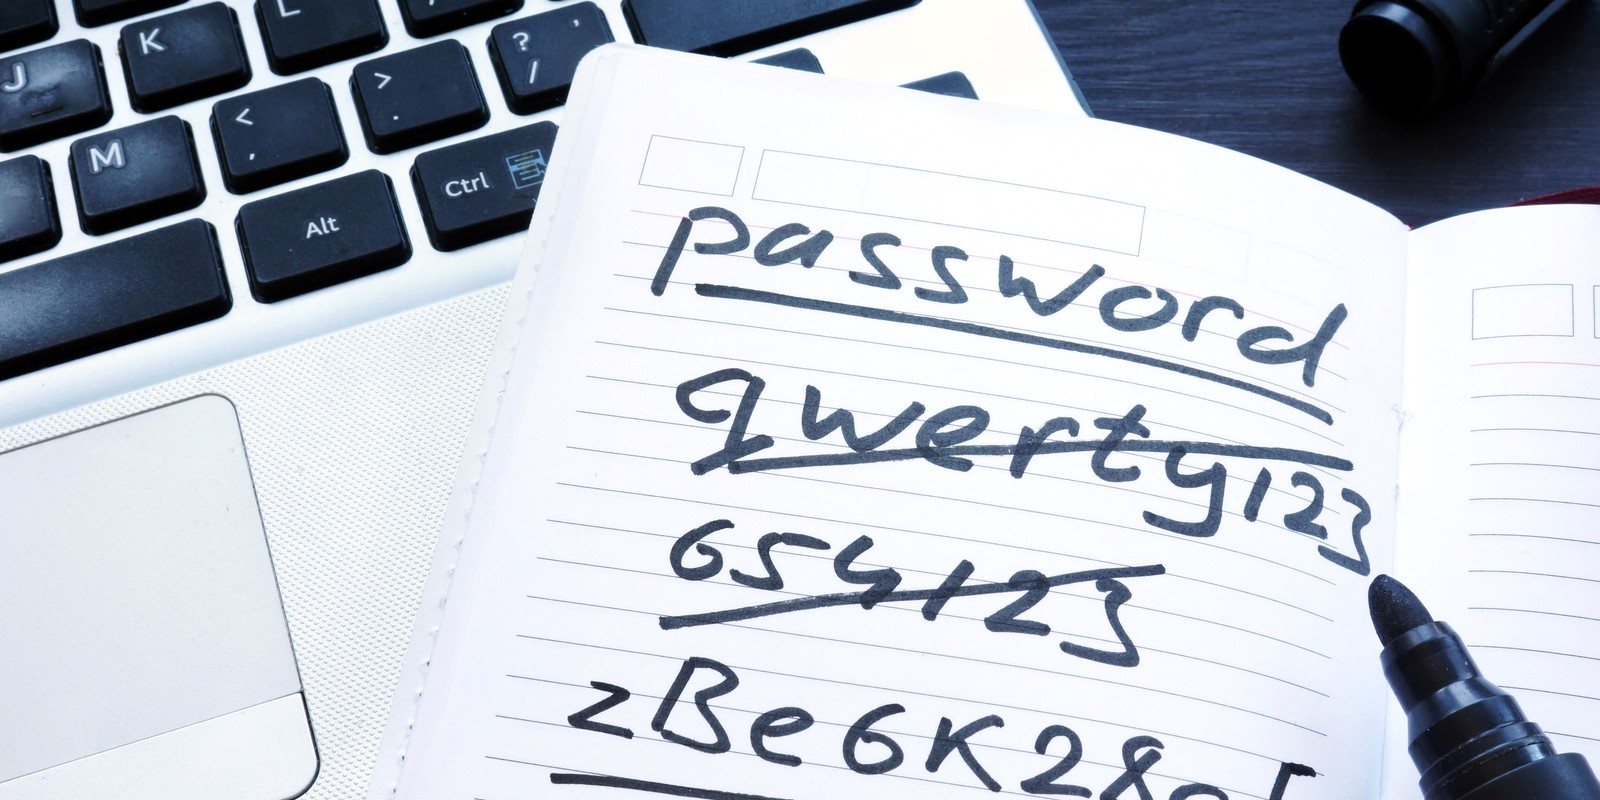 J K L
M < , > . ? / ' "
Alt Ctrl
password
qwerty123
654123